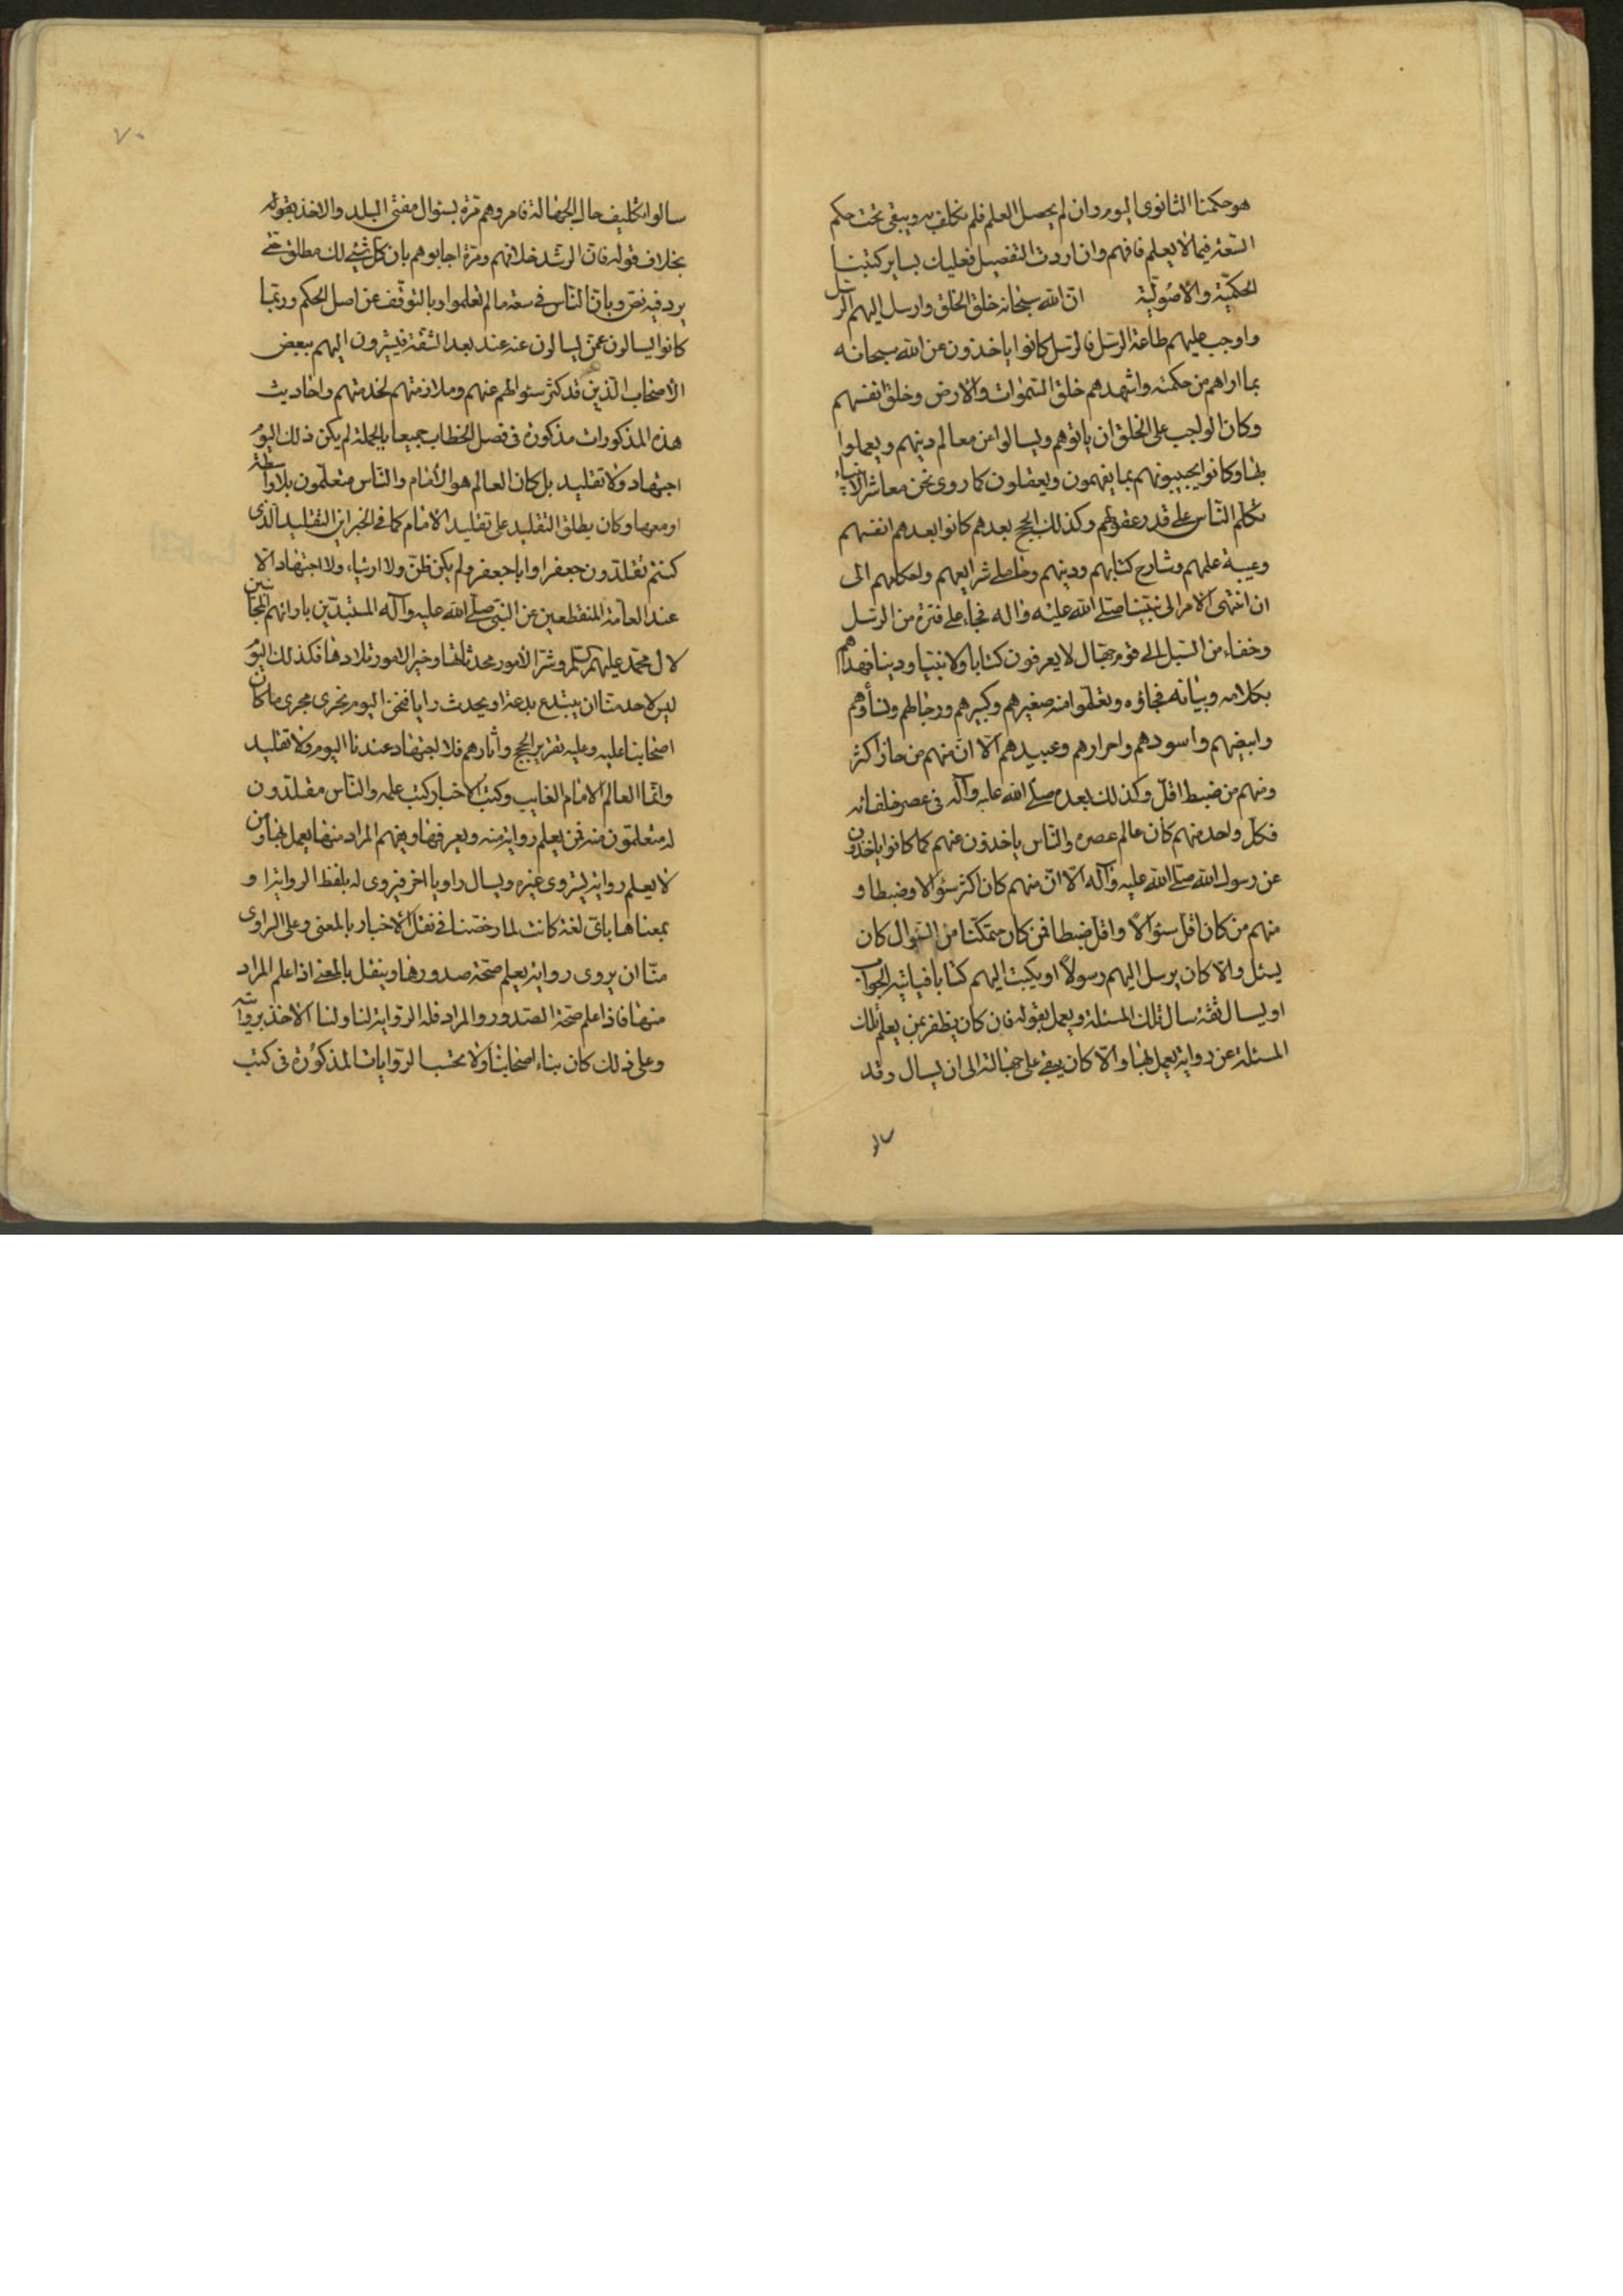 هو حكمنا الثانوى اليوم وان لم يحصل العلم فلم نكلف به ويبقى تحت حكم
السعة فيما لا يعلم فافهم وان اردت التفصيل فعليك بساير كتبنا
الحكميّة والاصوليّة ان الله سبحانه خلق الخلق وارسل اليهم الرسل
واوجب عليهم طاعة الرسل فالرسل كانوا ياخذون عن الله سبحانه
بما اراهم من حكمته واشهدهم خلق السموات والارض وخلق انفسهم
وكان الواجب على الخلق ان ياتوهم ويسالوا عن معالم دينهم ويعملوا
بها وكانوا يجيبونهم بما يفهمون ويعقلون كما روى نحن معاشر الانبياء
نكلم الناس على قدر عقولهم وكذلك الحجج بعدهم كانوا بعدهم انفسهم
وعيبة علمهم وشارح كتابهم ودينهم وحاملى شرايعهم واحكامهم الى
ان انتهى الامر الى نبينا صلى الله عليه واله فجاء على فترة من الرسل
وخفاء من السبل الى قوم جهال لا يعرفون كتابا ولا نبيا ودينا فهداهم
بكلامه وبيانه فجاؤه وتعلموا منه صغيرهم وكبيرهم ورجالهم ونساؤهم
وابيضهم واسودهم واحرارهم وعبيدهم الّا انّ منهم من حاز اكثر
ومنهم من ضبط اقل وكذلك بعده صلى الله عليه وآله فى عصر خلفائه
فكل واحد منهم كان عالم عصره والناس ياخذون عنهم كما كانوا ياخذون
عن رسول الله صلى الله عليه وآله الّا انّ منهم كان اكثر سئوالا وضبطا و
منهم من كان اقل سئوالاً واقل ضبطا فمن كان متمكّنا من السؤال كان
يسئل والا كان يرسل اليهم رسولاً او يكتب اليهم كتابا فياتيه الجواب
او يسال ثقة سال تلك المسئلة ويعمل بقوله فان كان يظفر بمن يعلم تلك
المسئلة عن رواية يعمل بها والّا كان يبقى على جهالته الى ان يسال وقد
٧٠
سالوا تكليف حال الجهالة فامروهم مرة بسئوال مفتى البلد والاخذ بقوله
بخلاف قوله فان الرشد خلافهم ومرة اجابوهم بان كل شئ لك مطلق حتى
يرد فيه نص وبان الناس فى سعة ما لم تعلموا او بالتوقف عن اصل الحكم وربّما
كانوا يسالون عمّن يسالون عنه عند بعد الشقة فيشيرون اليهم ببعض
الاصحاب الذين قد كثر سئوالهم عنهم وملازمتهم لخدمتهم واحاديث
هذه المذكورات مذكورة فى فصل الخطاب جميعا بالجملة لم يكن ذلك اليوم
اجتهاد ولا تقليد بل كان العالم هو الامام والناس متعلّمون بلا واسطة
او معها وكان يطلق التقليد على تقليد الامام كما فى الخبر اين التقليد الذى
كنتم تقلدون جعفرا وابا جعفر ولم يكن ظن ولا ارتياء ولا اجتهاد الّا
عند العامة المنقطعين عن النبى صلى الله عليه وآله المستبدّين بارائهم المجانبين
لال محمد عليهم السلم وشر الامور محدثاتها وخير الامور تلادها فكذلك اليوم
ليس لاحد منا ان يبتدع بدعة او يحدث رايا فنحن اليوم نجرى مجرى ما كان
اصحابنا عليه وعليه تقرير الحجج واثارهم فلا اجتهاد عندنا اليوم ولا تقليد
وانما العالم الامام الغايب وكتب الاخبار كتب علمه والناس مقلدون
له متعلمون منه فمن يعلم رواية منه ويعرفها ويفهم المراد منها يعمل بها ومن
لا يعلم رواية يستروى غيره ويسال راويا اخر فيروى له بلفظ الرواية او
بمعناها باىّ لغة كانت لما رخصنا فى نقل الاخبار بالمعنى وعلى الراوى
منّا ان يروى رواية يعلم صحّة صدورها وينقل بالمعنى اذا علم المراد
منها فاذا علم صحة الصدور والمراد فله الرواية لنا ولنا الاخذ بروايته
وعلى ذلك كان بناء اصحابنا ولا تحسب الروايات المذكورة فى كتب